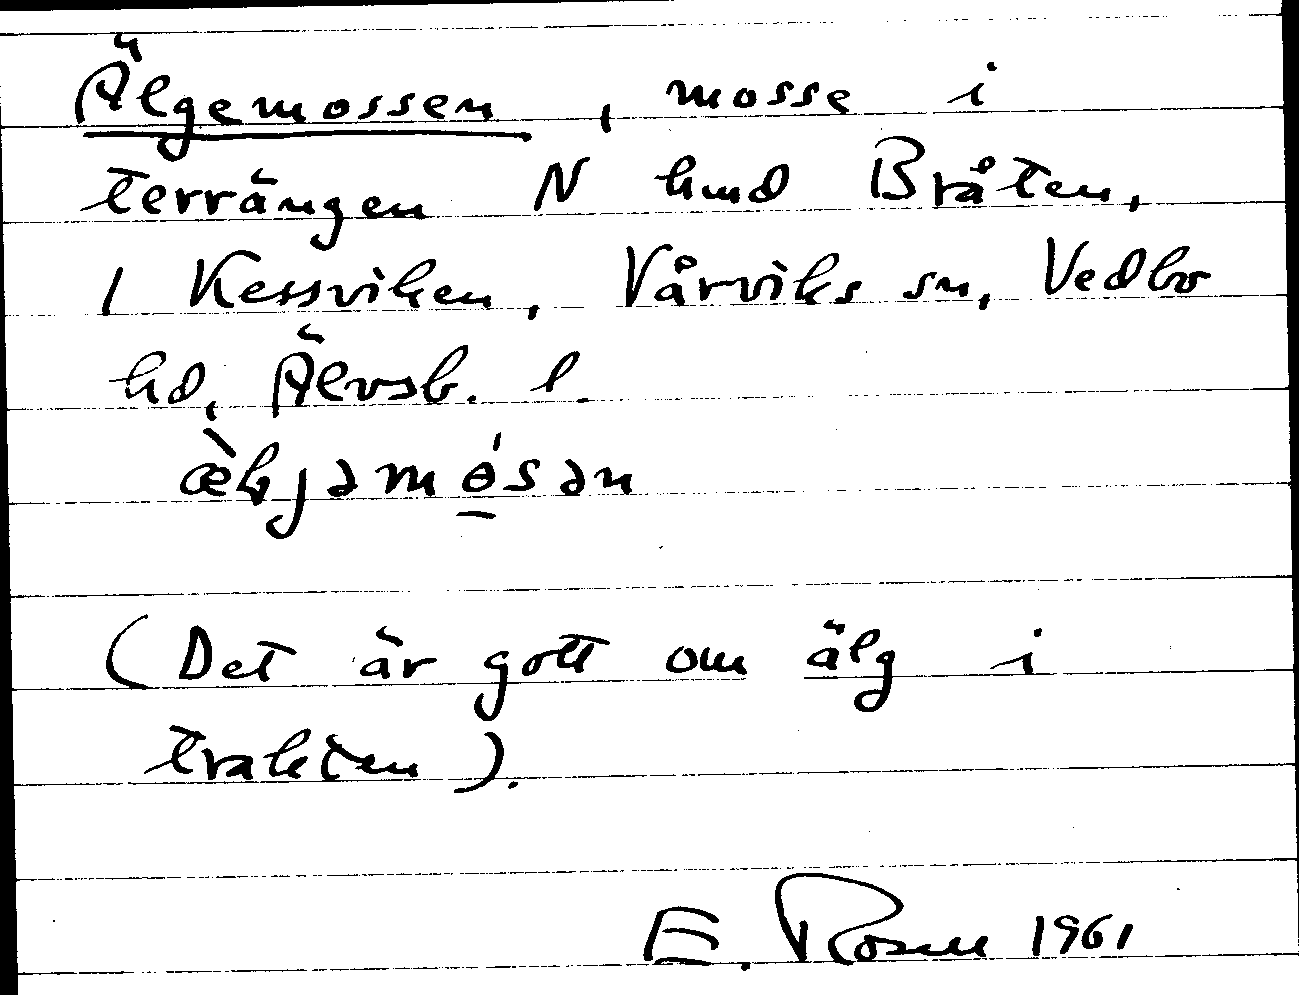 Älgemossen, mosse i
terrängen N hmd Bråten,
1 Kessviken, Vårviks sn, Vedbo
hd, Älvsb. l.
(Det är gott om älg i
trakten).
E. Rosen 1961